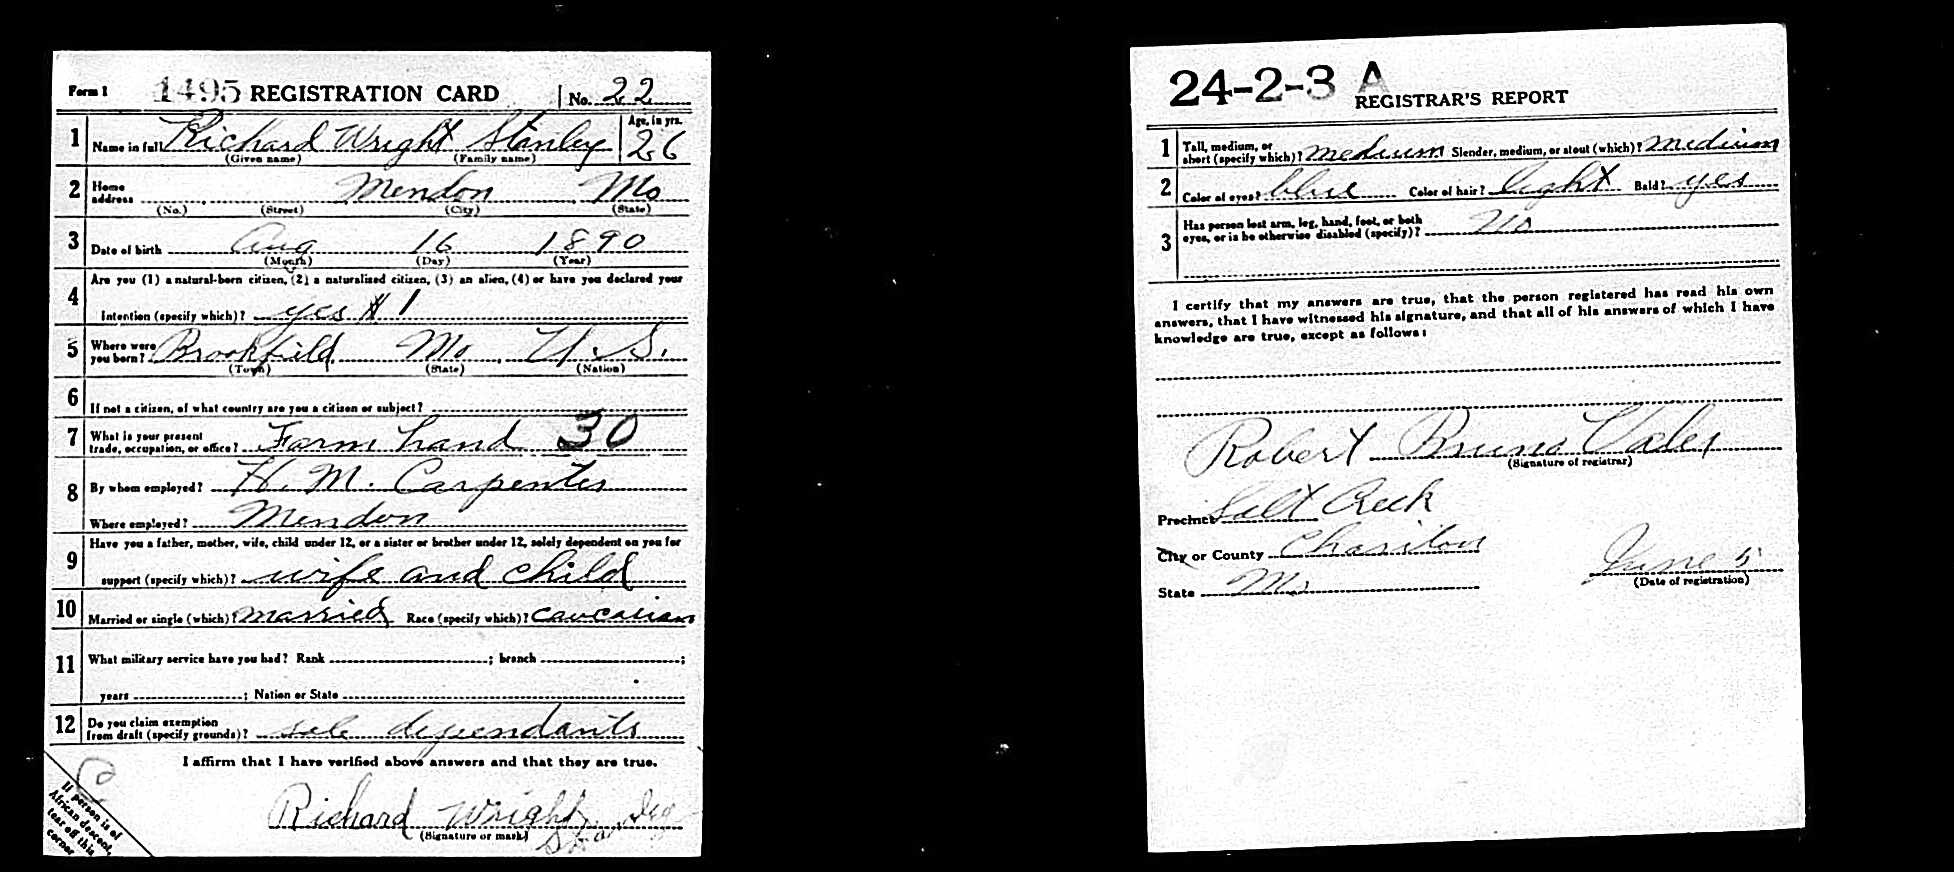 Form 1 1495 REGISTRATION CARD No. 22
1 Name in full Richard Wright Stanley Age, in yrs. 26
(Given name) (Family name)
2 Home address Mendon Mo
(No.) (Street) (City) (State)
3 Date of birth Aug 16 1890
(Month) (Day) (Year)
4 Are you (1) a natural-born citizen, (2) a naturalized citizen, (3) an alien, (4) or have you declared your
Intention (specify which)? yes # 1
5 Where were you born? Brookfield Mo U.S.
(Town) (State) (Nation)
6 If not a citizen, of what country are you a citizen or subject?
7 What is your present trade, occupation, or office? Farm hand 30
8 By whom employed? H. M. Carpenter
Where employed? Mendon
9 Have you a father, mother, wife, child under 12, or a sister or brother under 12, solely dependent on you for
support (specify which)? wife and child
10 Married or single (which)? married Race (specify which)? caucasian
11 What military service have you had? Rank ; branch ;
years ; Nation or State
12 Do you claim exemption from draft (specify grounds)? sole dependants
I affirm that I have verified above answers and that they are true.
Richard Wright
(Signature or mark)
If person is of
African descent,
tear off this
corner
24-2-3 A
REGISTRAR'S REPORT
1 Tall, medium, or short (specify which)? medium Slender, medium, or stout (which)? medium
2 Color of eyes? blue Color of hair? light Bald? yes
3 Has person lost arm, leg, hand, foot, or both
eyes, or is he otherwise disabled (specify)? No
I certify that my answers are true, that the person registered has read his own
answers, that I have witnessed his signature, and that all of his answers of which I have
knowledge are true, except as follows:
Robert Bruno
(Signature of registrar)
Precinct Salt Creek
City or County Chariton
State Mo. June 5
(Date of registration)